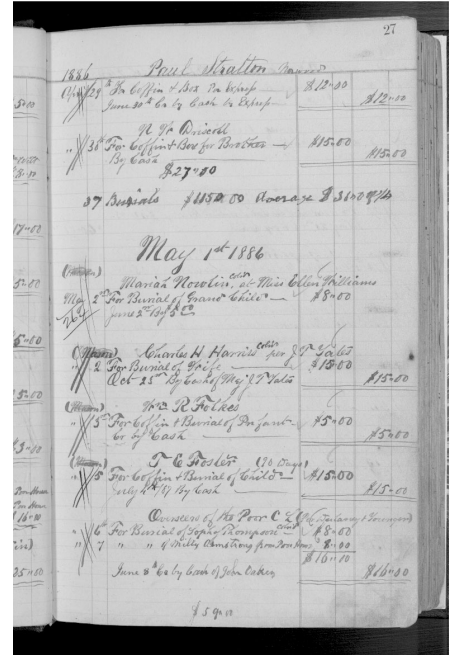 27
1886 Paul Stratton
29th For Coffin & Box Pr Express $12.00
June 30th Cr by Cash by Express $12.00
N W Driscoll
" 30th For Coffin & Box for Brother $15.00
By Cash $15.00
$27.00
37 Burials $1150.00 Average $31.00
May 1st 1886
(Mason)
Mariah Nowlin cold at Miss Ellen Williams
May 2nd For Burial of Grand Child $8.00
264 June 2nd By 5.00
(Mason) Charles H Harris cold per J T Yates
" 2 For Burial of Wife $15.00
Oct 25th By Cash of Maj J T Yates $15.00
(Mason) Wm R Folkes
" 5th For Coffin & Burial of Infant $5.00
Cr by Cash $5.00
T C Foster (90 Days)
" 5 For Coffin & Burial of Child $15.00
July By Cash $15.00
Overseers of the Poor C L
" 6th For Burial of Thompson cold $8.00
" 7 " " of Armstrong from Poor House $8.00
$16.00
June 8th Cr by Cash of John Oakey $16.00
$59.00